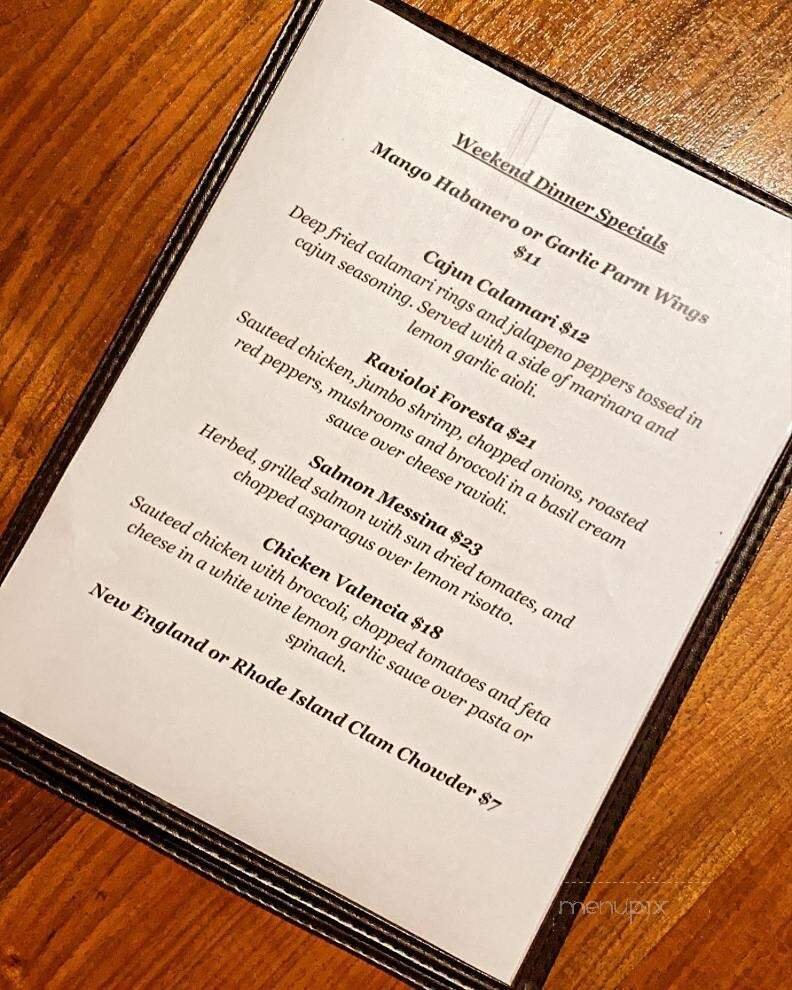 Weekend Dinner Specials
Mango Habanero or Garlic Parm Wings
$11
Cajun Calamari $12
Deep fried calamari rings and jalapeno peppers tossed in
cajun seasoning. Served with a side of marinara and
lemon garlic aioli.
Ravioloi Foresta $21
Sauteed chicken, jumbo shrimp, chopped onions, roasted
red peppers, mushrooms and broccoli in a basil cream
sauce over cheese ravioli.
Salmon Messina $23
Herbed, grilled salmon with sun dried tomates, and
chopped asparagus over lemon risotto.
Chicken Valencia $18
Sauteed chicken with broccoli, chopped tomatoes and feta
cheese in a white wine lemon garlic sauce over pasta or
spinach.
New England or Rhode Island Clam Chowder $7
menupix